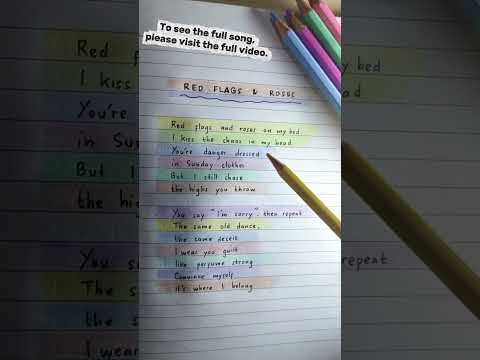 To see the full song,
please visit the full video.
RED FLAGS & ROSES
Red flags and roses on my bed
I kiss the chaos in my head
You're danger dressed
in Sunday clothes
But I still chase
the highs you throw
You say "I'm sorry" then repeat
The same old dance,
the same deceit
I wear you guilt
like perfume strong
Convince myself
it's where I belong
You sa
repeat
The s
the s
I wear